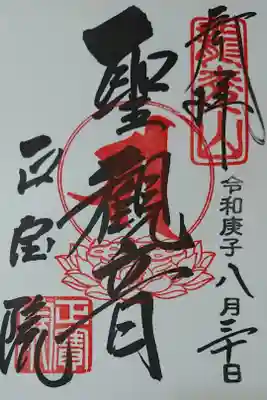 奉拝
令和庚子八月二十日
聖觀音
正宝院